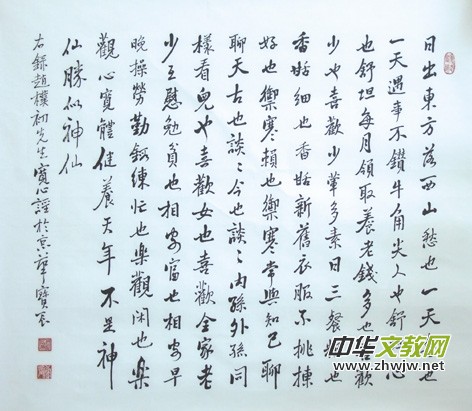 日出東方落西山愁也一天也
一天遇事不鑽牛角尖人也舒心
也舒坦每月領取養老錢多也喜歡
少也喜歡少葷多素日三餐也
香甜細也香甜新舊衣服不挑揀
好也禦寒賴也禦寒常與知己聊
聊天古也談々今也談々内孫外孫同
樣看兒也喜歡女也喜歡全家老
少互慰勉貧也相安富也相安早
晚操勞勤鍛練忙也樂觀閑也樂
觀心寬體健養天年不是神
仙勝似神仙
右録趙樸初先生寬心謡於京華寶辰
中华文教网
www.zhwjw.com